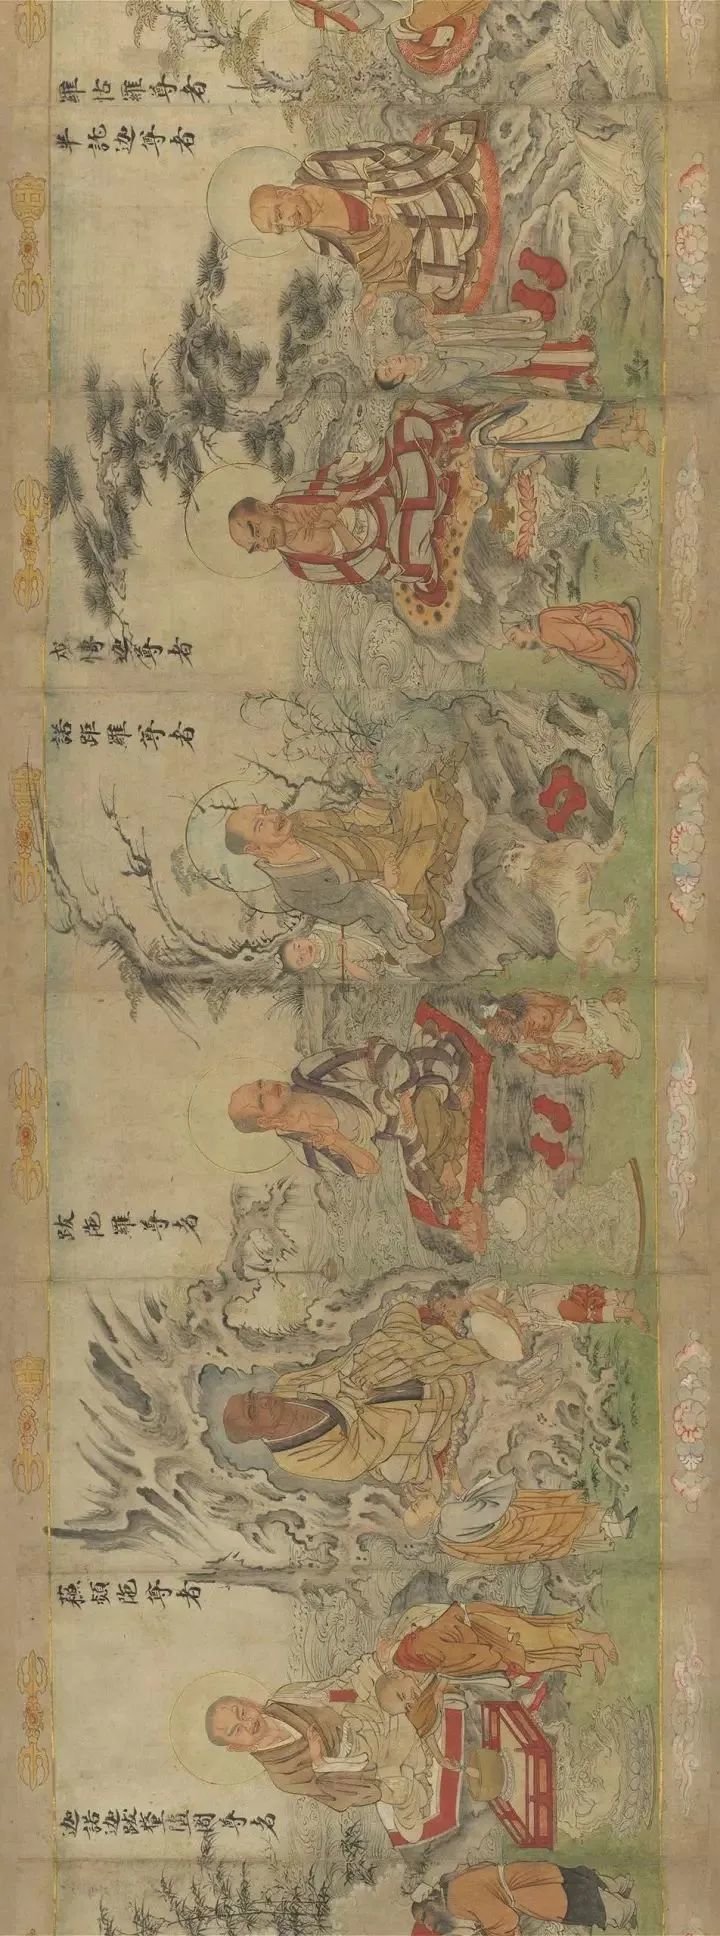 羅怙羅尊者
半託迦尊者
戍愽迦尊者
諾距羅尊者
跋陁羅尊者
蘓頻陁尊者
迦諾迦跋釐墮闍尊者